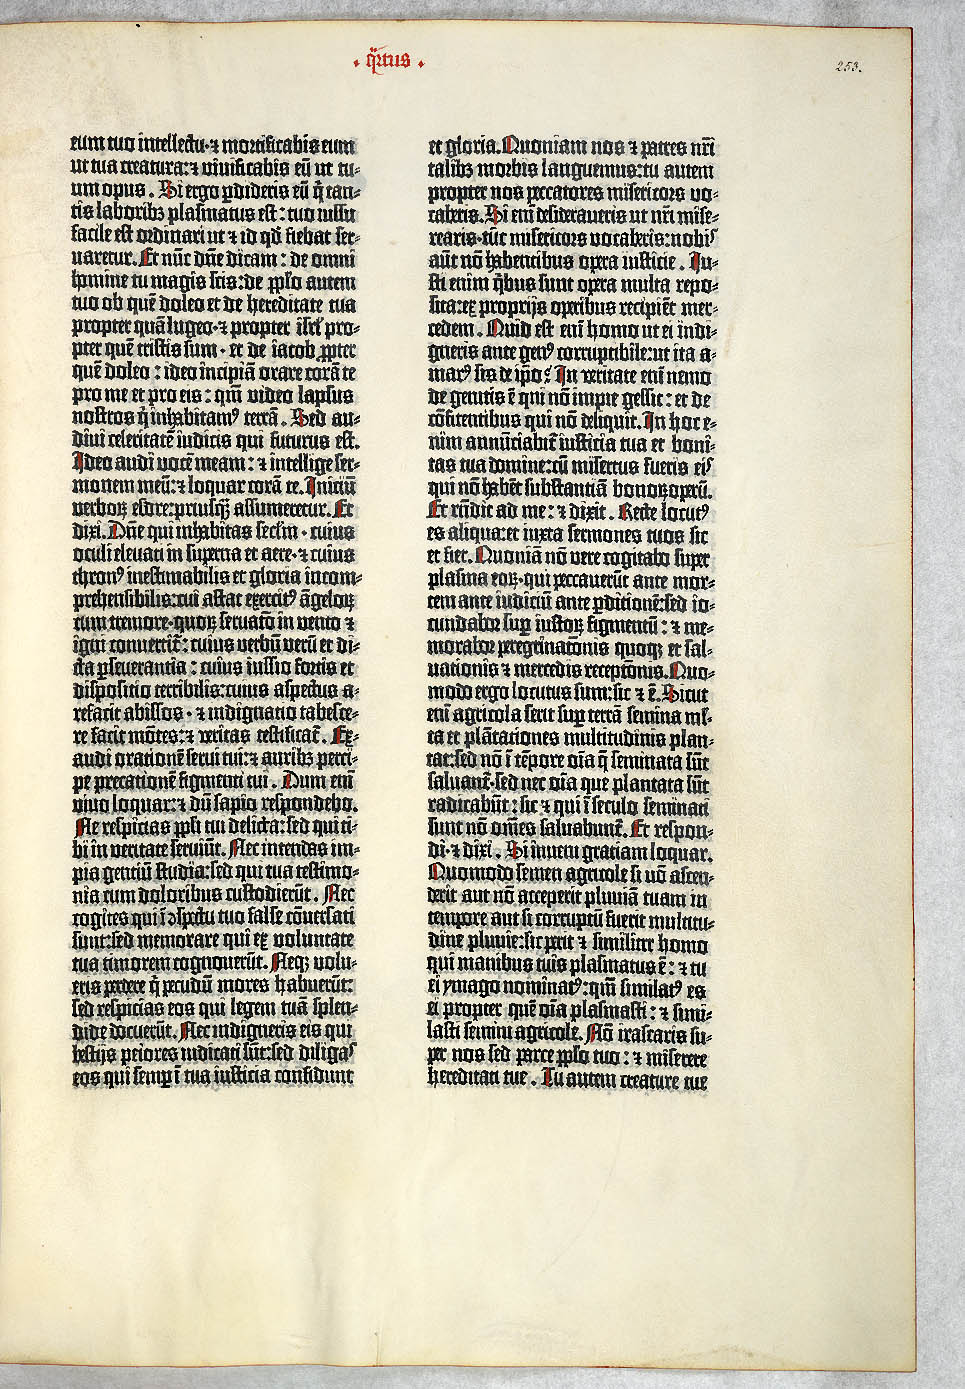 · q̄rtus ·
253.
eum tuo intellectu· ⁊ mortificabis eum
ut tua creatura: ⁊ vivificabis eū ut tu-
um opus. Si ergo ꝑdideris eū q̄ tan-
tis laboribꝫ plasmatus est: tuo iussu
facile est ordinari ut ⁊ id qd̄ fiebat ser-
varetur. Et nūc dn̄e dicam: de omni
homine tu magis scis: de pp̄lo autem
tuo ob quē doleo et de hereditate tua
propter quā lugeo· ⁊ propter isrl̄ pro-
pter quē tristis sum· et de iacob ꝓpter
quē doleo: ideo incipiā orare corā te
pro me et pro eis: qm̄ video lapsus
nostros q̄ inhabitamꝰ terrā. Sed au-
divi celeritatē iudicis qui futurus est.
Ideo audi vocē meam: ⁊ intellige ser-
monem meū: ⁊ loquar corā te. Iniciū
verboꝝ esdre: priusqꝫ̄ assumeretur. Et
dixi. Dn̄e qui inhabitas seclm̄· cuius
oculi elevati in superna et aere· ⁊ cuius
thronꝰ inestimabilis et gloria incom-
prehensibilis: cui astat exercitꝰ āgeloꝝ
cum tremore· quoꝝ servatō in vento ⁊
igni convertit̄: cuius verbū verū et di-
cta ꝑseverantia: cuius iussio fortis et
dispositio terribilis: cuius aspectus a-
refacit abissos· ⁊ indignatio tabesce-
re facit mōtes: ⁊ veritas testificat̄. Ex-
audi orationē servi tui: ⁊ auribꝫ perci-
pe precationē figmenti tui. Dum eni̅
vivo loquar: ⁊ dū sapio respondebo.
Ne respicias pp̄li tui delicta: sed qui ti-
bi in veritate serviūt. Nec intendas im-
pia gentiū studia: sed qui tua testimo-
nia cum doloribus custodierūt. Nec
cogites qui ī ↄspectu tuo false cōversati
sunt: sed memorare qui ex voluntate
tua timorem cognoverūt. Neqꝫ volu-
eris perdere q̄ pecudū mores habuerūt:
sed respicias eos qui legem tuā splen-
dide docuerūt. Nec indigneris eis qui
bestijs peiores iudicati sūt: sed diligaꝰ
eos qui semꝑ ī tua iusticia confidunt
et gloria. Quoniam nos ⁊ patres nr̄i
talibꝫ morbis languemus: tu autem
propter nos peccatores misericors vo-
caberis. Si eni̅ desideraveris ut nr̄i mise-
rearis· tūc misericors vocaberis: nobiꝰ
aūt nō habentibus opera iusticie. Iu-
sti enim q̄bus sunt opera multa repo-
sita: ex proprijs operibus recipiēt mer-
cedem. Quid est eni̅ homo ut ei indi-
gneris ante genꝰ corruptibile: ut ita a-
marꝰ sis de ip̄o? In veritate eni̅ nemo
de genitis ē qui nō impie gessit: et de
cōfitentibus qui nō deliquit. In hoc e-
nim annūciabit̄ iusticia tua et boni-
tas tua domine: cū misertus fueris eiꝰ
qui nō habēt substantiā bonoꝝ operū.
Et rn̄dit ad me: ⁊ dixit. Recte locutꝰ
es aliqua: et iuxta sermones tuos sic
et fiet. Quoniā nō vere cogitabo super
plasma eoꝝ· qui peccaverūt ante mor-
tem ante iudiciū ante ꝑditionē: sed io-
cundabor suꝑ iustoꝝ figmentū: ⁊ me-
morabor peregrinatōnis quoqꝫ et sal-
vationis ⁊ mercedis receptōnis. Quo-
modo ergo locutus sum: sic ⁊ ē. Sicut
eni̅ agricola serit suꝑ terrā semina ml̄-
ta et plātationes multitudinis plan-
tat: sed nō ī tēpore oīa q̄ seminata sūt
salvant̄· sed nec oīa que plantata sūt
radicabūt: sic ⁊ qui ī seculo seminati
sunt nō om̄es salvabunt̄. Et respon-
di· ⁊ dixi. Si inveni gratiam loquar.
Quomodo semen agricole si nō ascen-
derit aut nō acceperit pluviā tuam in
tempore aut si corruptū fuerit multitu-
dine pluvie: sic perit ⁊ similiter homo
qui manibus tuis plasmatus ē: ⁊ tu
ei ymago nominatꝰ: qm̄ similatꝰ es
ei propter quē oīa plasmasti: ⁊ simi-
lasti semini agricole. Nō irascaris su-
per nos sed parce pp̄lo tuo: ⁊ miserere
hereditati tue. Tu autem creature tue